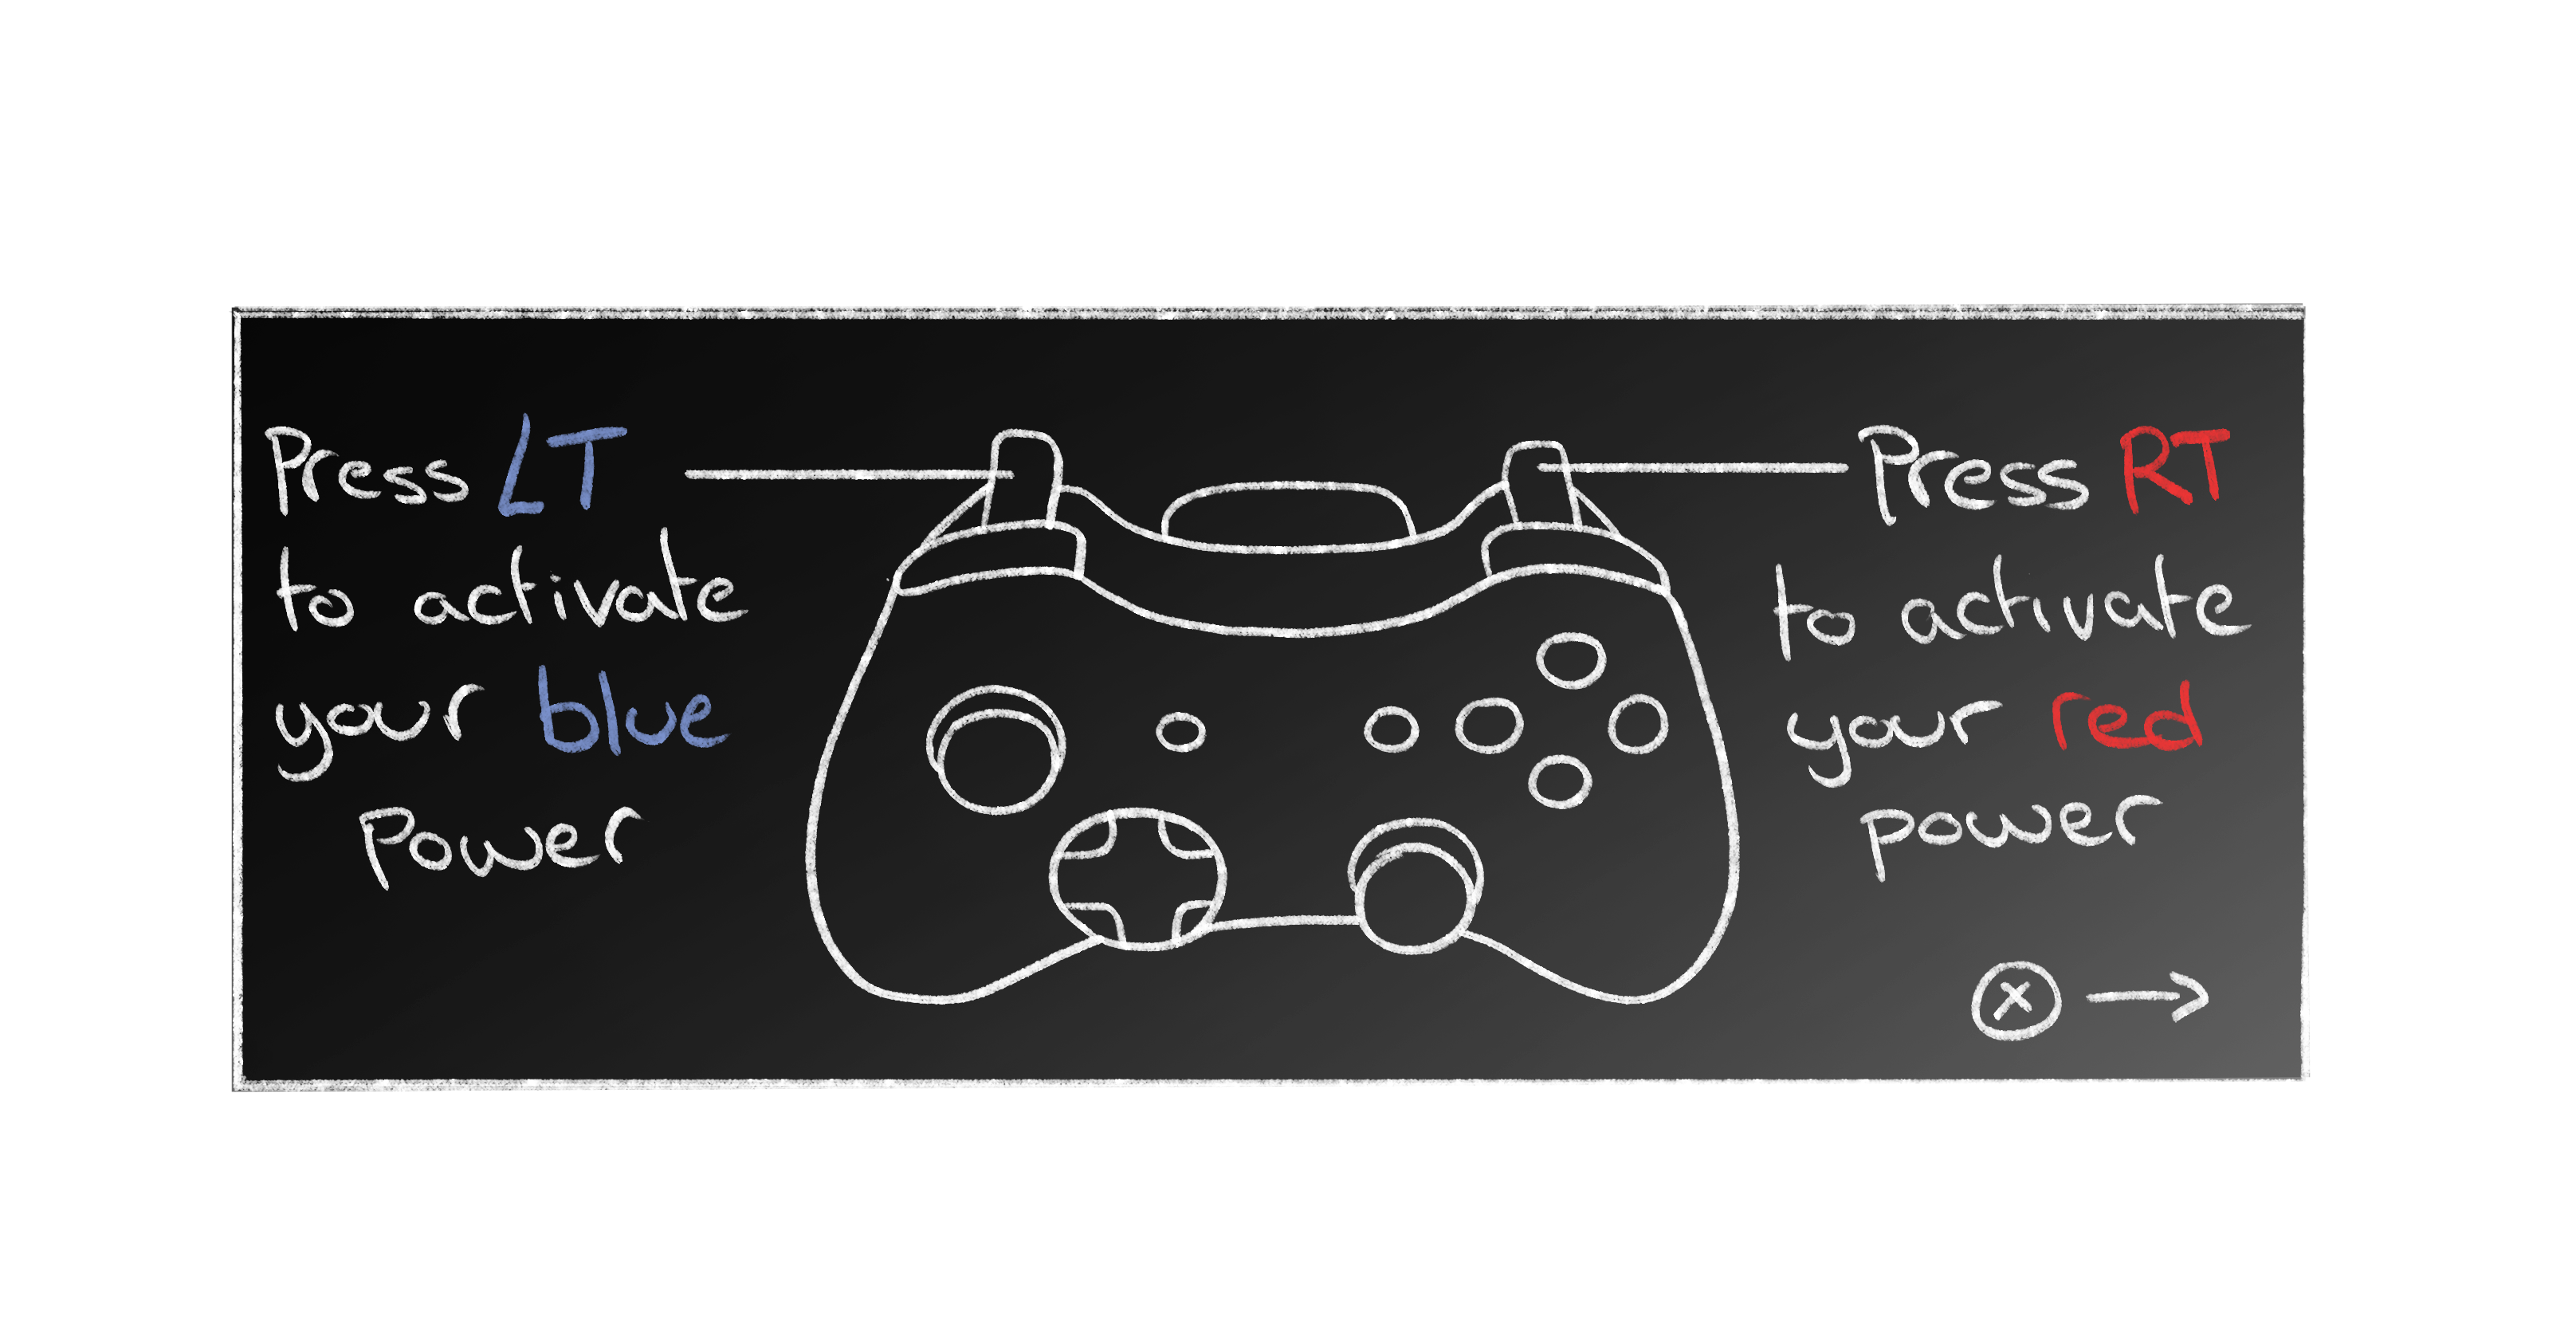 Press LT
to activate
your blue
Power
Press RT
to activate
your red
power
X →